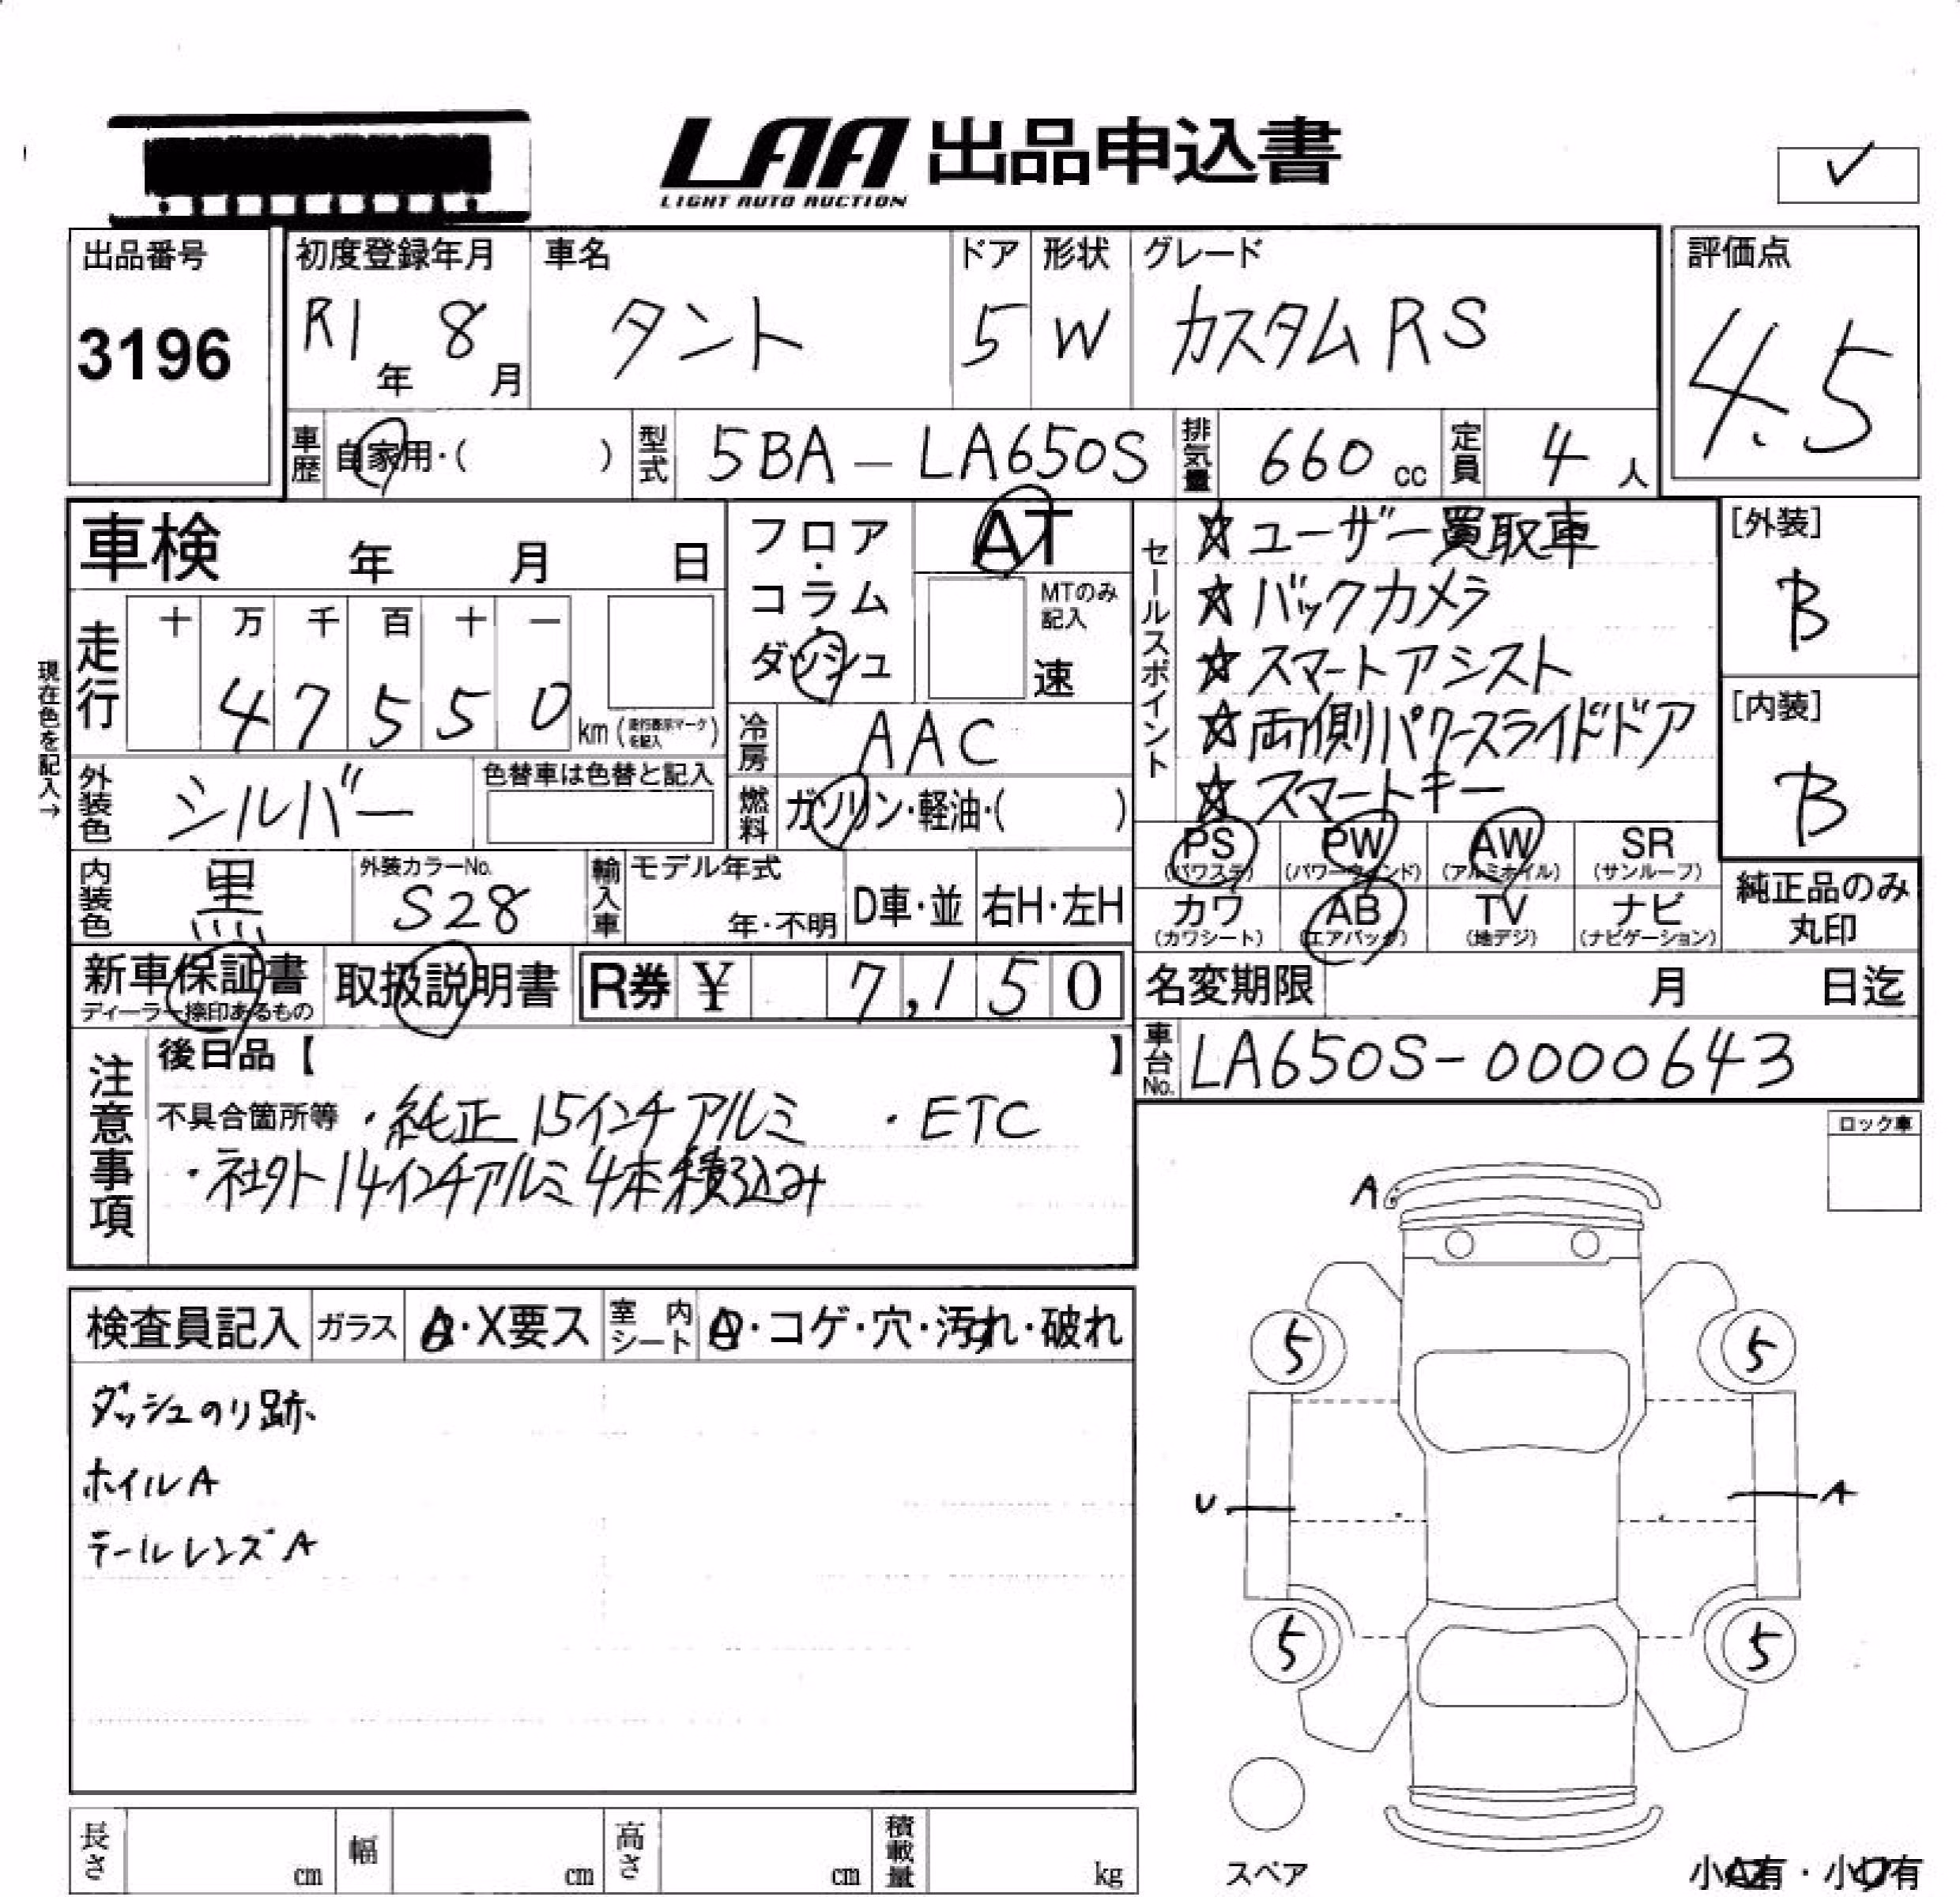 LAA 出品申込書
LIGHT AUTO AUCTION
出品番号
3196
初度登録年月
R1年 8月
車名
タント
ドア
5
形状
W
グレード
カスタムRS
評価点
4.5
車歴 自家用・( )
型式 5BA-LA650S
排気量 660 cc
定員 4 人
車検 年 月 日
フロア・コラム・ダッシュ
AT
MTのみ記入
速
セールスポイント
☆ユーザー買取車
☆バックカメラ
☆スマートアシスト
☆両側パワースライドドア
☆スマートキー
[外装]
B
[内装]
B
現在色を記入→
走行
十 万 千 百 十 一
4 7 5 5 0 km (走行表示マークを記入)
冷房 AAC
外装色 シルバー
色替車は色替と記入
燃料 ガソリン・軽油・( )
PS (パワステ)
PW (パワーウィンド)
AW (アルミホイル)
SR (サンルーフ)
カワ (カワシート)
AB (エアバック)
TV (地デジ)
ナビ (ナビゲーション)
純正品のみ丸印
内装色 黒
外装カラーNo.
S28
輸入車
モデル年式
年・不明
D車・並
右H・左H
新車保証書
ディーラー捺印あるもの
取扱説明書
R券 ¥ 7,150
名変期限 月 日迄
車台No. LA650S-0000643
注意事項
後日品【 】
不具合箇所等 ・純正15インチアルミ ・ETC
・社外14インチアルミ4本積込み
ロック車
検査員記入
ガラス A・X要ス
室内シート
・コゲ・穴・汚れ・破れ
ダッシュのり跡
ホイルA
テールレンズA
A
5 5
U A
5 5
スペア
長さ cm
幅 cm
高さ cm
積載量 kg
小A有・小U有